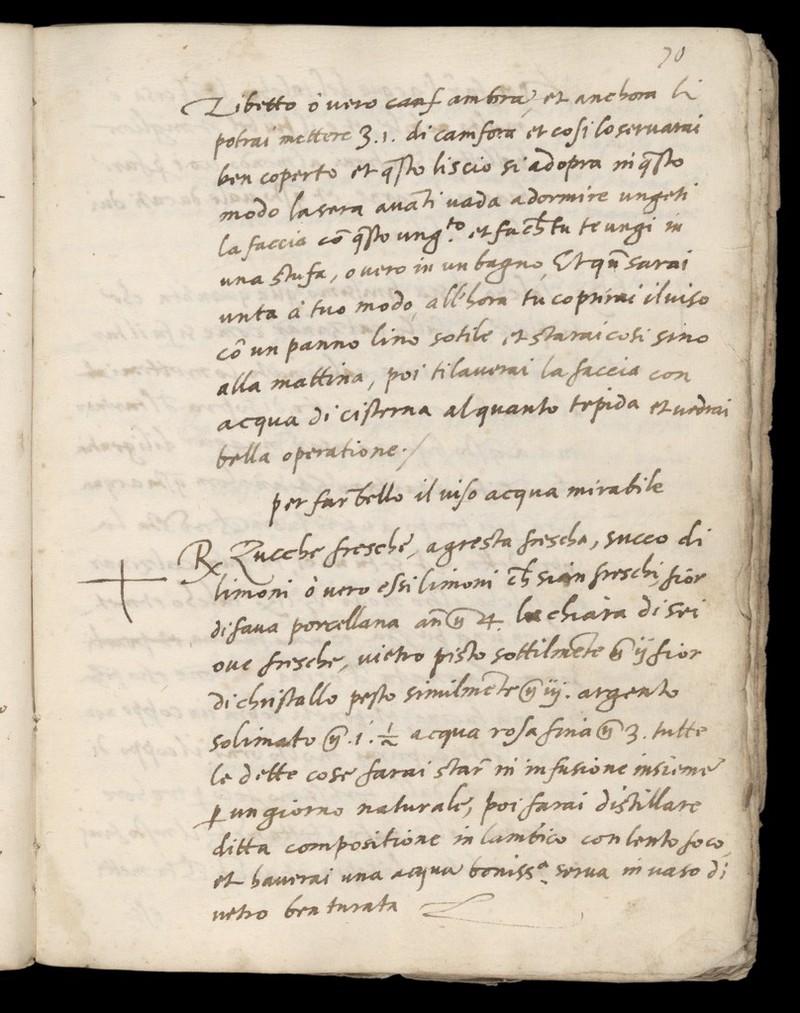 70
Zibetto ò vero canf ambra, et anchora li
potrai mettere ʒ .1. di camfora et cosi lo servarai
ben coperto et q̃sto liscio si adopra in q̃sto
modo la sera avãti vada a dormire ungeti
la faccia cõ q̃sto ung.to et fa ch̃ tu te ungi in
una stufa, o vero in un bagno, Et qñ sarai
unta à tuo modo, all'hora tu coprirai il viso
cõ un panno lino sotile, et starai cosi sino
alla mattina, poi ti laverai la faccia con
acqua di cisterna alquanto tepida et vedrai
bella operatione ./
per far bello il viso acqua mirabile
℞ Zucche fresche, agresta frescha, succo di
limoni ò vero essi limoni ch̃ siãn freschi, fior
di fava porcellana añ ℥ 4. la chiara di sei
ove fresche, vietro pisto sottilmẽte ℥ ij fior
di christallo pesto similmẽte ℥ iij. argento
solimato ℥ .1. ½ acqua rosa fina ℥ 3. tutte
le dette cose farai star in infusione insieme
ꝑ un giorno naturale, poi farai distillare
ditta compositione in lambico con lento foco,
et haverai una acqua boniss.a serva in vaso di
vetro ben turata